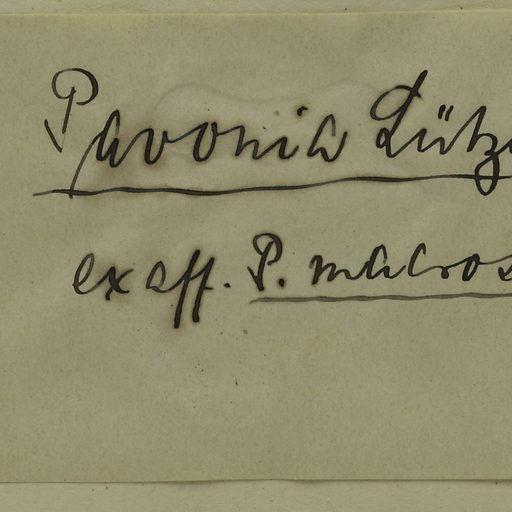 Pavonia Lütz
ex aff. P. macros